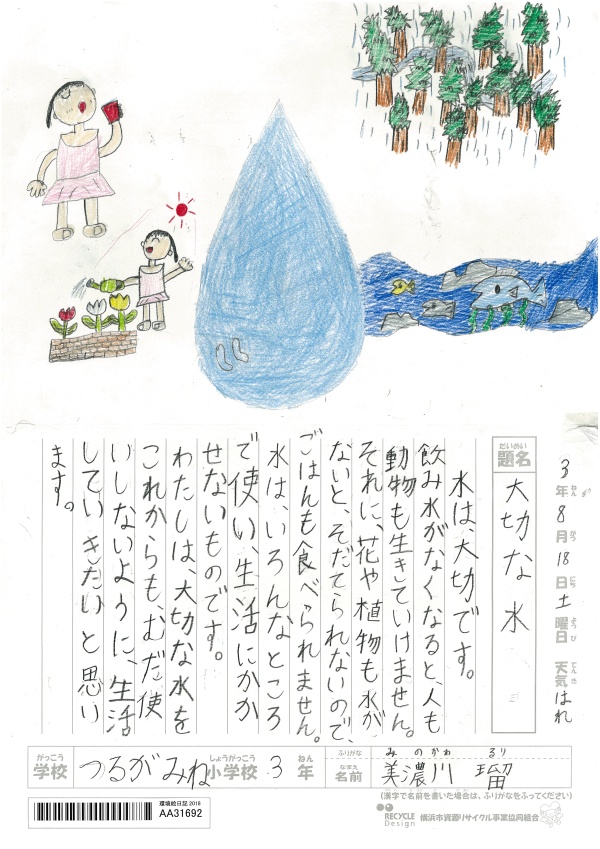 3年8月18日土曜日 天気はれ
ねん がつ にち ようび てんき
だいめい
題名
大切な水
水は、大切です。
飲み水がなくなると、人も
動物も生きていけません。
それに、花や植物も水が
ないと、そだてられないので、
ごはんも食べられません。
水は、いろんなところ
で使い、生活にかか
せないものです。
わたしは、大切な水を
これからも、むだ使
いしないように、生活
していきたいと思い
ます。
がっこう しょうがっこう ねん
学校 つるがみね小学校 3年
ふりがな みのかわ るり
なまえ
名前 美濃川 瑠
(漢字で名前を書いた場合は、ふりがなをふってください)
環境絵日記 2018
AA31692
RECYCLE Design
横浜市資源リサイクル事業協同組合